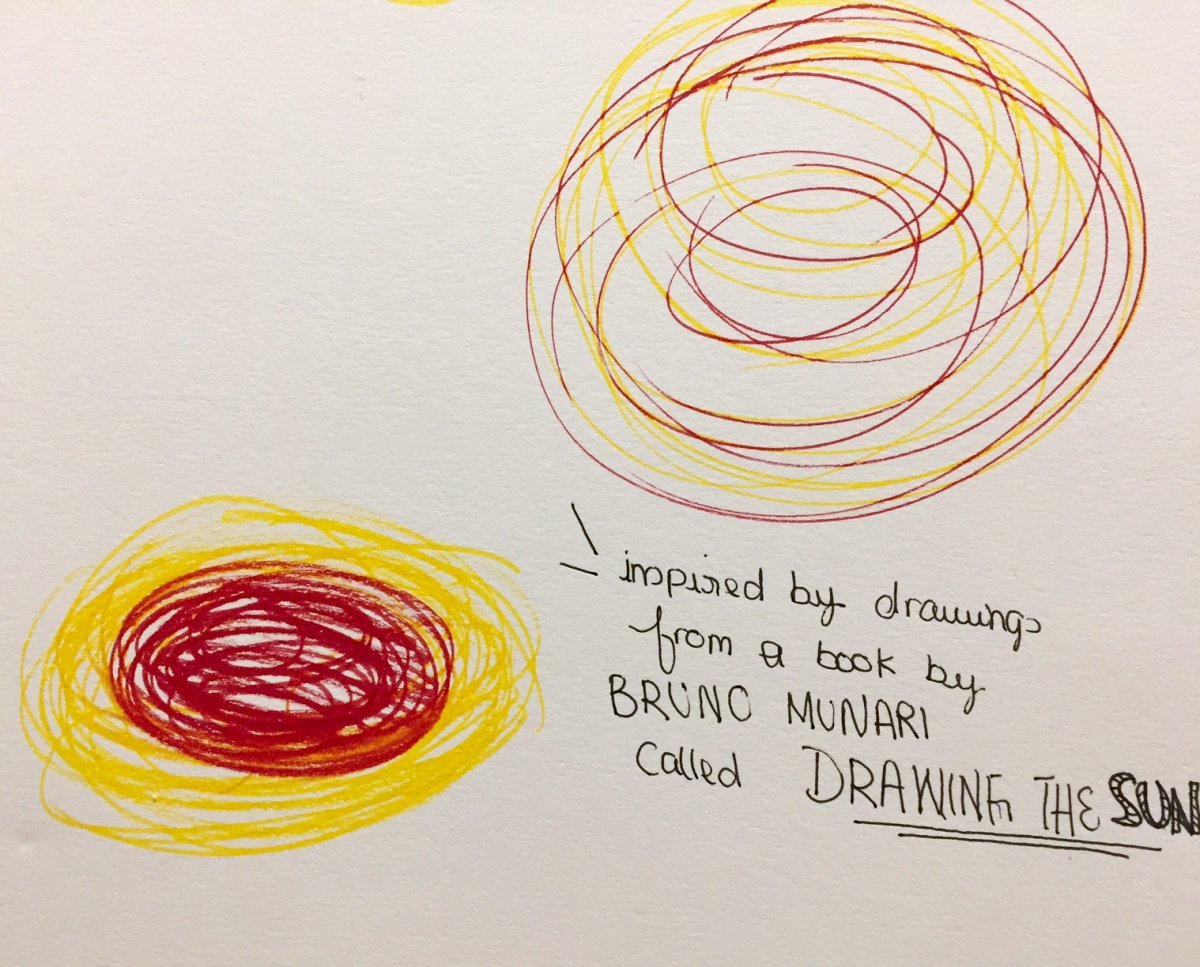 inspired by drawings
from a book by
BRUNO MUNARI
called DRAWING THE SUN